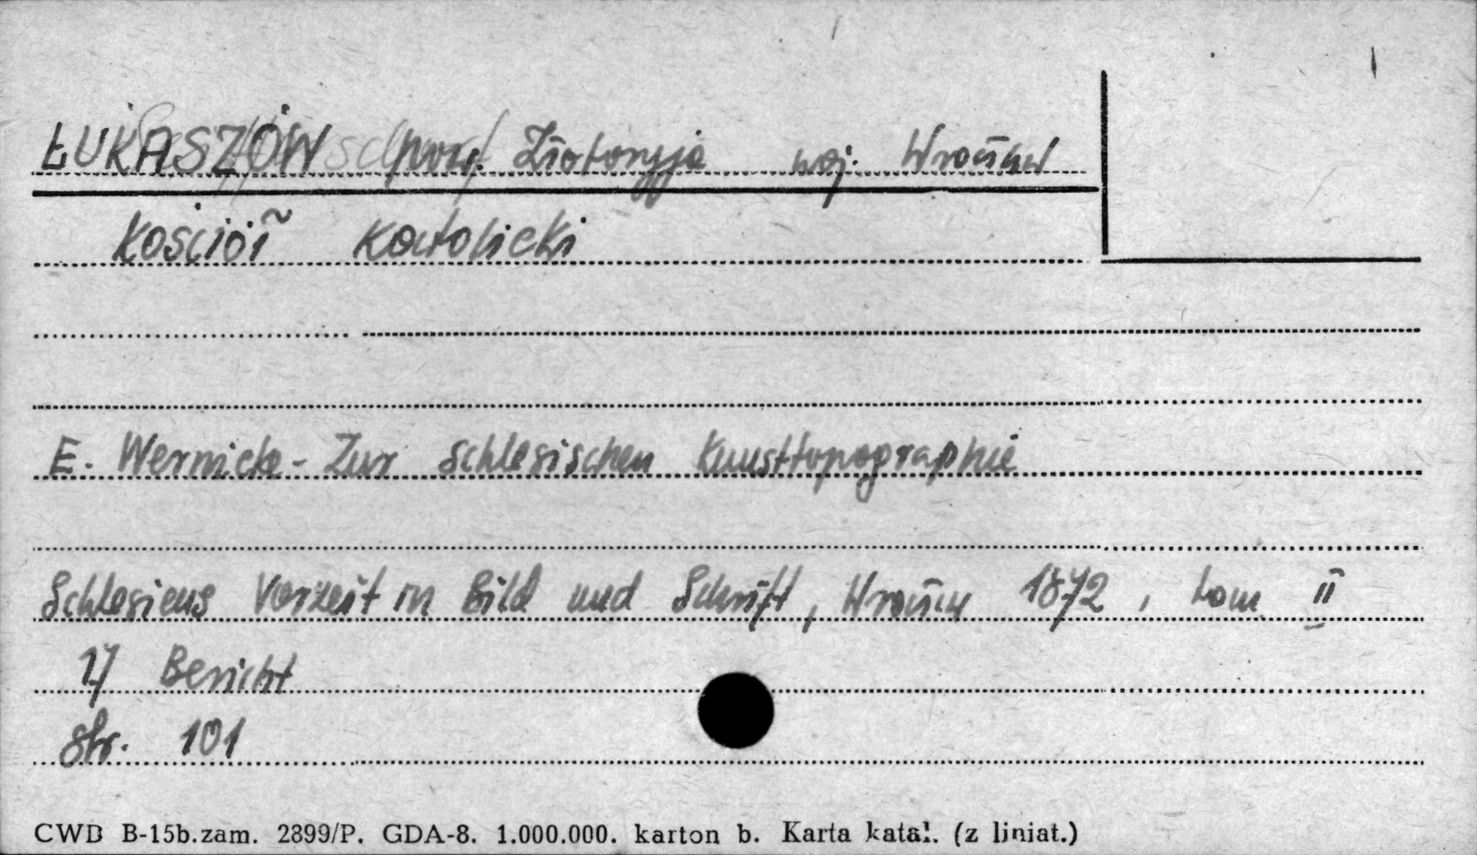 ŁUKASZÓW pow. Złotoryja woj. Wrocław
Kościół Katolicki
E. Wernicke - Zur schlesischen Kunsttopographie
Schlesiens Vorzeit in Bild und Schrift, Wrocław 1872, tom II
17 Bericht
str. 101
CWD B-15b.zam. 2899/P. GDA-8. 1.000.000. karton b. Karta katal. (z liniat.)